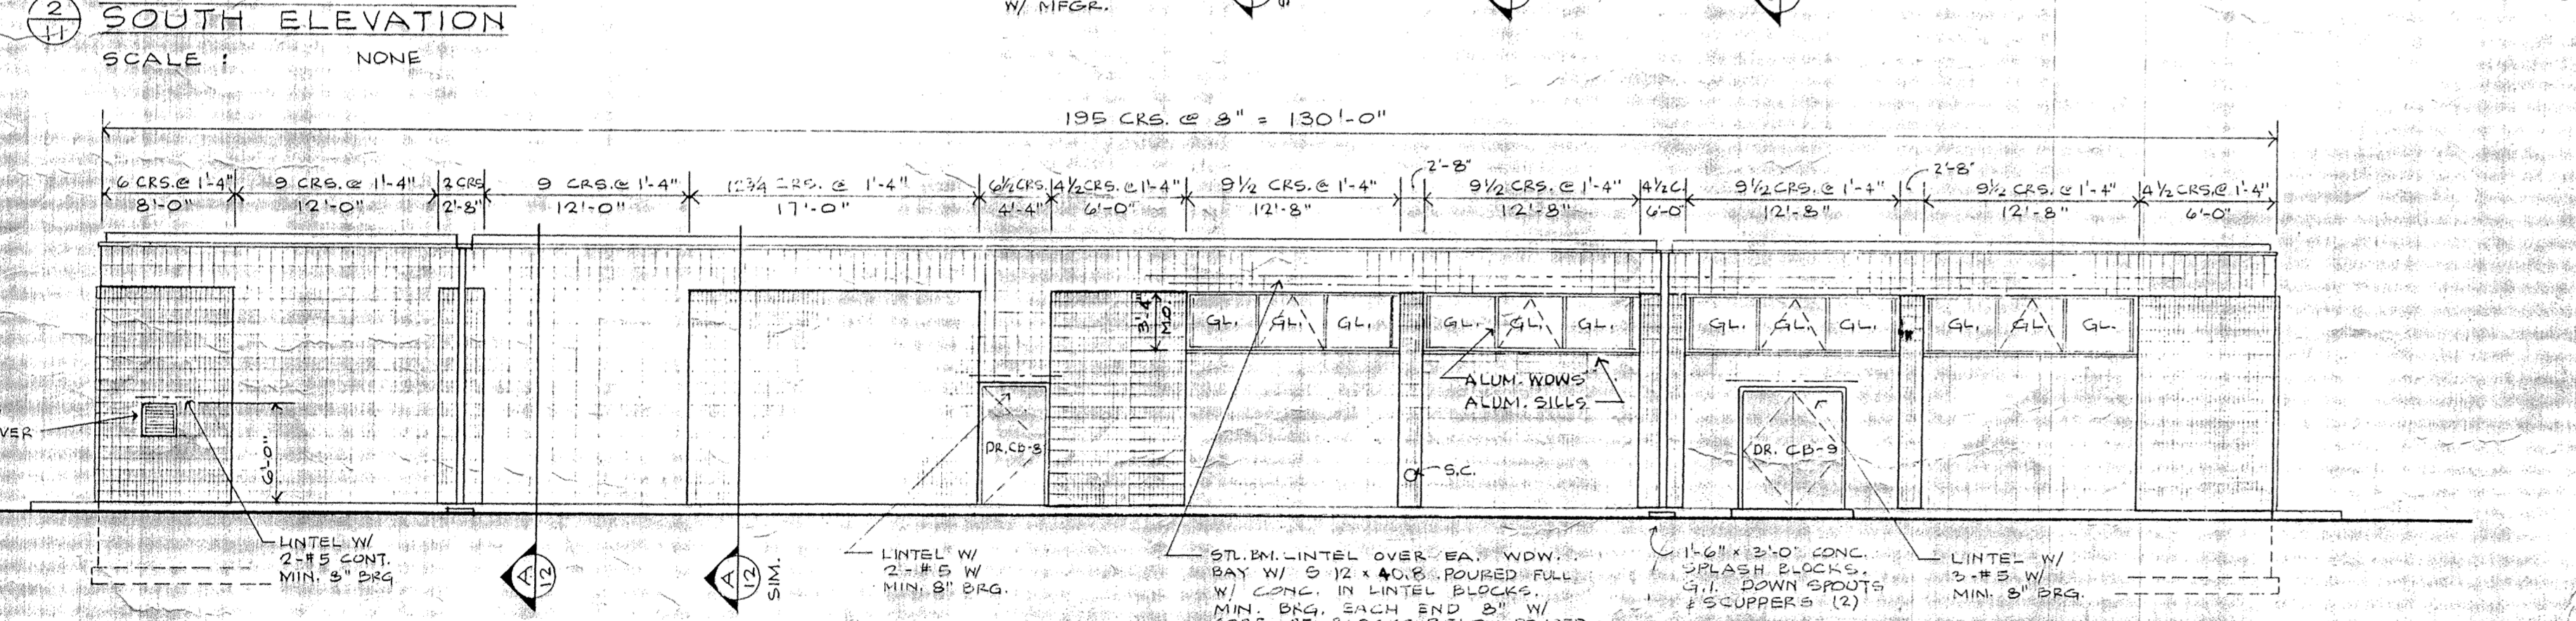 2
11
SOUTH ELEVATION
SCALE : NONE
W/ MFGR.
195 CRS. @ 8" = 130'-0"
6 CRS. @ 1'-4"
8'-0"
9 CRS. @ 1'-4"
12'-0"
2 CRS
2'-8"
9 CRS. @ 1'-4"
12'-0"
12 3/4 CRS. @ 1'-4"
17'-0"
6 1/2 CRS.
4'-4"
4 1/2 CRS. @ 1'-4"
6'-0"
9 1/2 CRS. @ 1'-4"
12'-8"
2'-8"
9 1/2 CRS. @ 1'-4"
12'-8"
4 1/2 C.
6'-0"
9 1/2 CRS. @ 1'-4"
12'-8"
2'-8"
9 1/2 CRS. @ 1'-4"
12'-8"
4 1/2 CRS. @ 1'-4"
6'-0"
3'-4"
M.O.
GL. GL. GL.
GL. GL. GL.
GL. GL. GL.
GL. GL. GL.
ALUM. WDWS
ALUM. SILLS
VER
6'-0"
DR. CB-8
S.C.
DR. CB-9
LINTEL W/
2-#5 CONT.
MIN. 8" BRG
A
12
A
12
SIM.
LINTEL W/
2-#5 W/
MIN. 8" BRG.
STL. BM. LINTEL OVER EA. WDW.
BAY W/ S 12 x 40.8 POURED FULL
W/ CONC. IN LINTEL BLOCKS.
MIN. BRG. EACH END 8" W/
1'-6" x 3'-0" CONC.
SPLASH BLOCKS.
G.I. DOWN SPOUTS
& SCUPPERS (2)
LINTEL W/
3-#5 W/
MIN. 8" BRG.